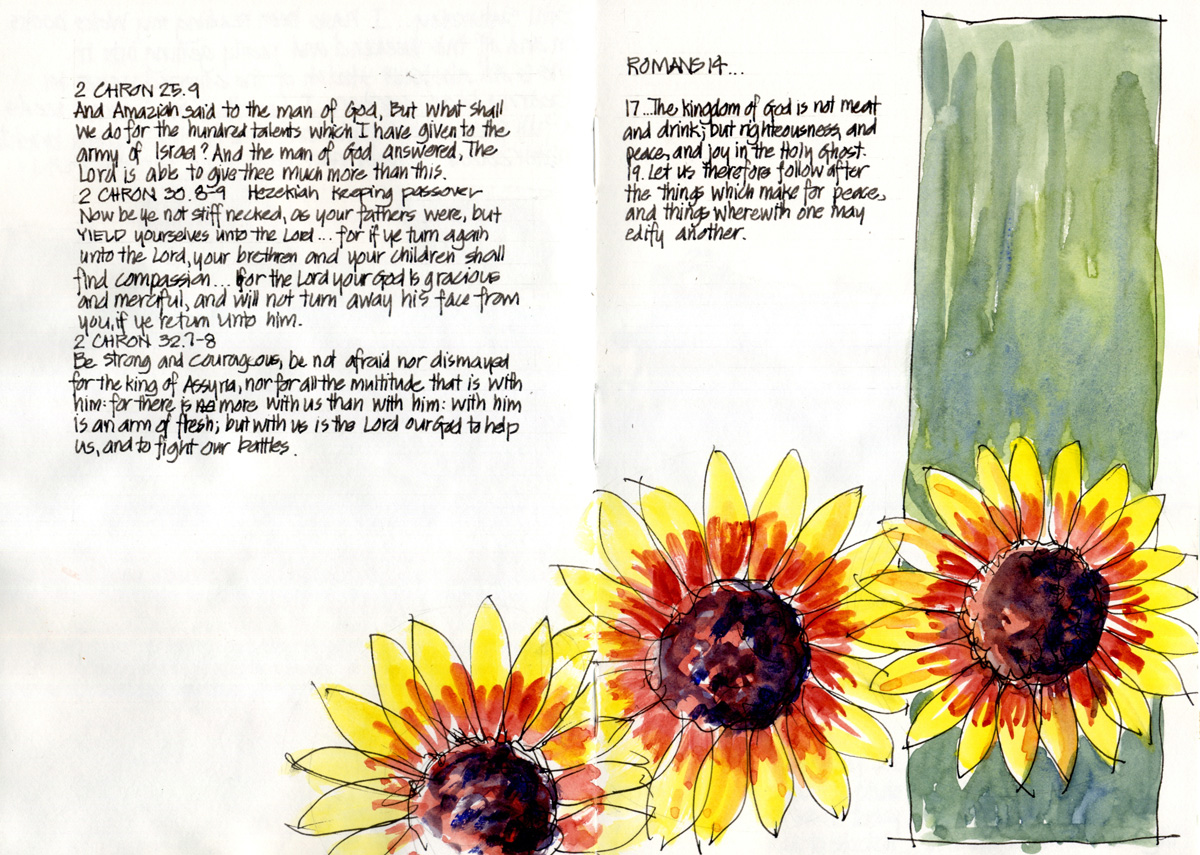 2 CHRON 25.9
And Amaziah said to the man of God, But what shall
we do for the hundred talents which I have given to the
army of Israel? And the man of God answered, The
Lord is able to give thee much more than this.
2 CHRON 30.8-9 Hezekiah keeping passover
Now be ye not stiff necked, as your fathers were, but
YIELD yourselves unto the Lord... for if ye turn again
unto the Lord, your brethren and your children shall
find compassion... for the Lord your God is gracious
and merciful, and will not turn away his face from
you, if ye return unto him.
2 CHRON 32.7-8
Be strong and courageous, be not afraid nor dismayed
for the king of Assyria, nor for all the multitude that is with
him: for there is more with us than with him: with him
is an arm of flesh; but with us is the Lord our God to help
us, and to fight our battles.
ROMANS 14...
17...The kingdom of God is not meat
and drink; but righteousness, and
peace, and joy in the Holy Ghost.
19. Let us therefore follow after
the things which make for peace,
and things wherewith one may
edify another.